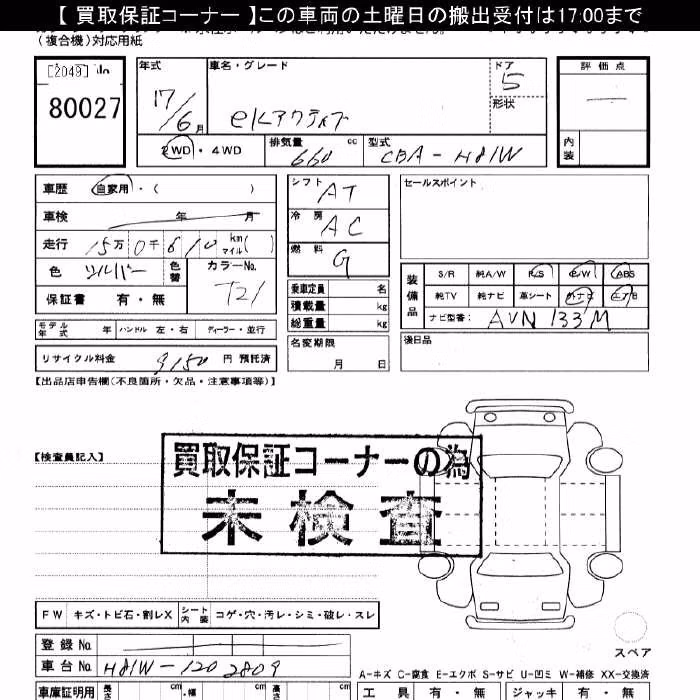 【 買取保証コーナー 】この車両の土曜日の搬出受付は17:00まで
(複合機)対応用紙
[2049] No
80027
年式
17/6月
車名・グレード
eKアクティブ
ドア
5
形状
評価点
内装
2WD・4WD
排気量 660 cc
型式 CBA-H81W
車歴 自家用・( )
車検 年 月
走行 15万0千610 km マイル( )
色 シルバー
色替
カラーNo. T21
保証書 有・無
モデル年式 年 ハンドル 左・右 ディーラー・並行
リサイクル料金 9150 円 預託済
シフト AT
冷房 AC
燃料 G
乗車定員 名
積載量 kg
総重量 kg
名変期限
月 日
セールスポイント
装備品
S/R 純A/W P/S P/W ABS
純TV 純ナビ 革シート 外ナビ ETB
ナビ型番: AVN 133M
後日品
【出品店申告欄(不良箇所・欠品・注意事項等)】
【検査員記入】
買取保証コーナーの為
未検査
FW キズ・トビ石・割レX シート内装 コゲ・穴・汚レ・シミ・破レ・スレ
スペア
登録No.
車台No. H81W-1202809
A-キズ C-腐食 E-エクボ S-サビ U-凹ミ W-補修 XX-交換済
車庫証明用 長さ cm 幅 cm cm
工具 有・無 ジャッキ 有・無